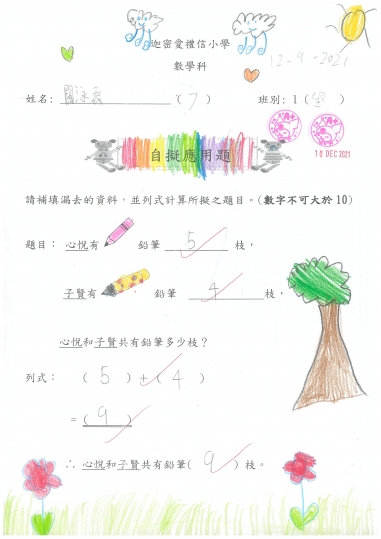 迦密愛禮信小學
數學科
12-9-2021
姓名： （7） 班別：1（ ）
10 DEC 2021
自擬應用題
請補填漏去的資料，並列式計算所擬之題目。(數字不可大於10)
題目： 心悅有 鉛筆 5 枝，
子賢有 鉛筆 4 枝，
心悅和子賢共有鉛筆多少枝？
列式： （ 5 ）+（ 4 ）
=（ 9 ）
∴ 心悅和子賢共有鉛筆( 9 ) 枝。